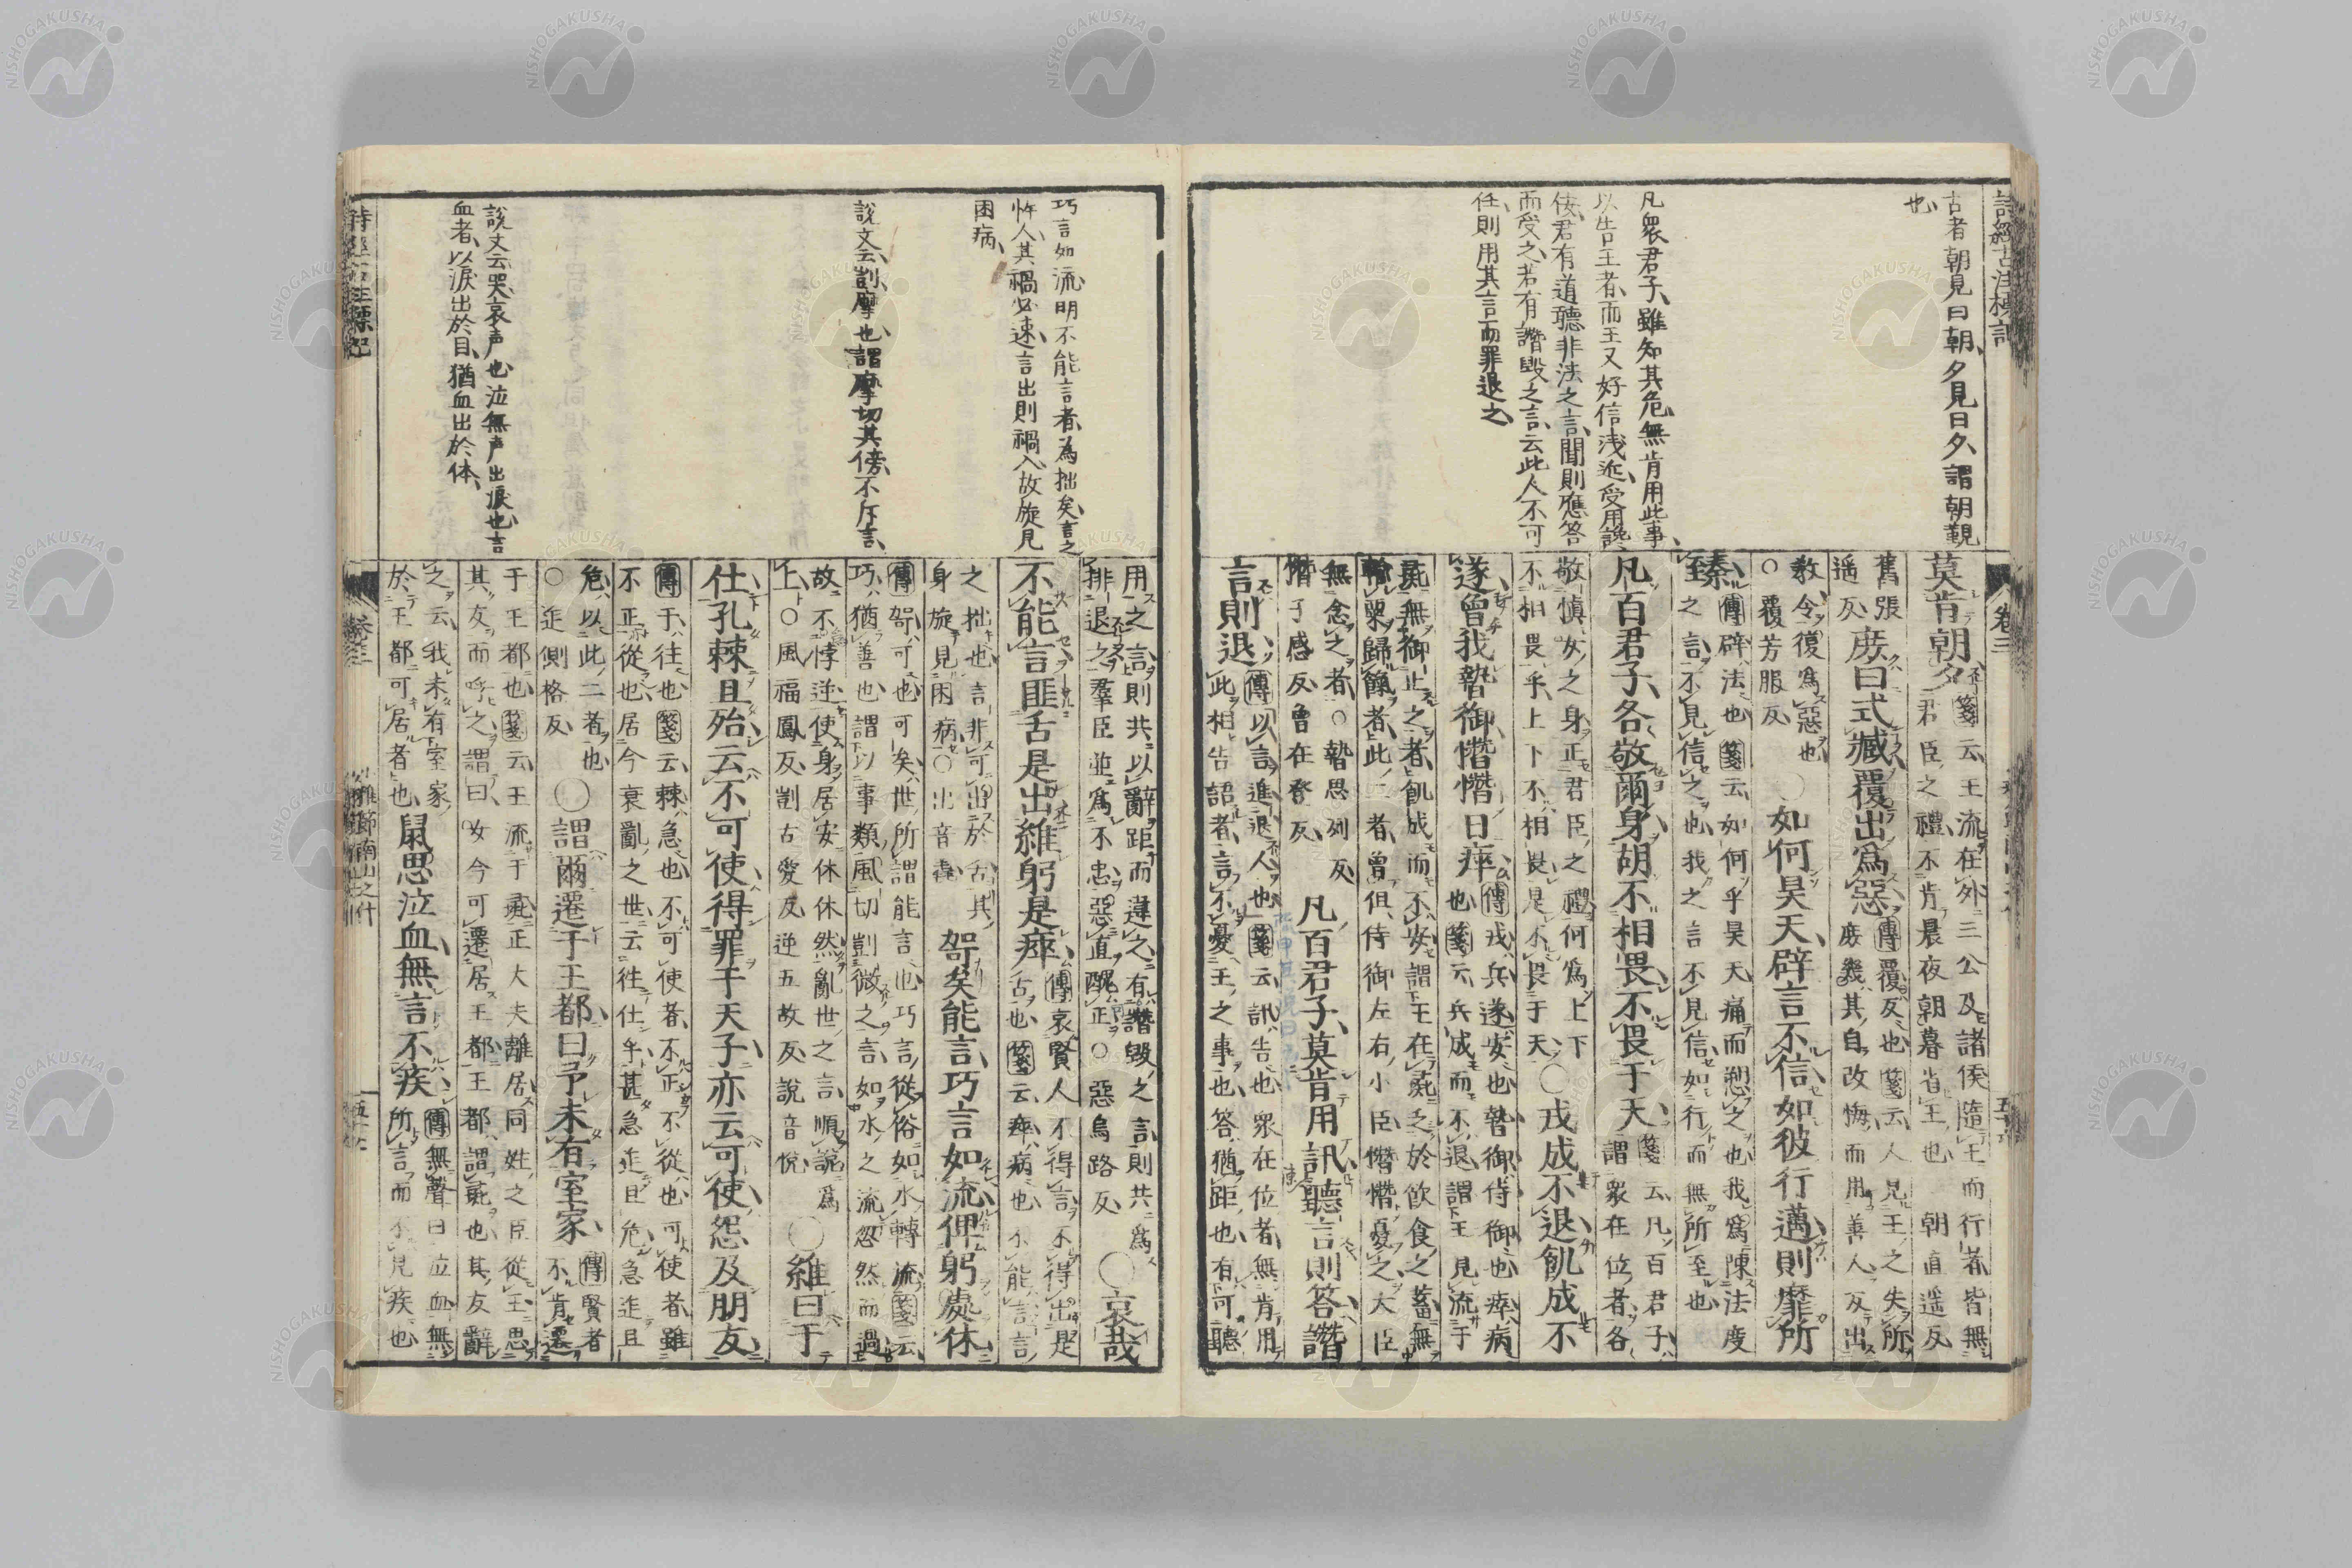 詩經古注標記
古者朝見曰朝、夕見曰夕、謂朝觀
也
凡衆君子、雖知其危、無肯用此事、
以告王者、而王又好信浅近、受用讒
佞、君有道聽非法之言、聞則應答
而受之、若有譖毀之言、云此人不可
任則用其言而罪退之、
卷三
莫肯朝夕
箋云王流在外三公及諸侯隨王而行者皆無
君臣之禮不肯晨夜朝暮省王也 朝直遥反
舊張
遥反
庶曰式臧覆出爲惡
傳覆反也箋云人見王之失所
庶幾其自改悔而用善人反出
教令復爲惡也
○覆芳服反
○如何昊天辟言不信如彼行邁則靡所
臻
傳辟法也箋云如何乎昊天痛而愬之也我爲陳法度
至之言不見信之也我之言不見信如行而無所至也
凡百君子各敬爾身胡不相畏不畏于天
箋云凡百君子
謂衆在位者各
敬愼女之身正君臣之禮何爲上下
不相畏乎上下不相畏是不畏于天
○戎成不退飢成不
遂曾我暬御憯憯日瘁
傳戎兵遂安也暬御侍御也瘁病
也箋云兵成而不退謂王見流于
彘無御止之者飢成而不安謂王在彘乏於飲食之蓄無
輸粟歸餼者此二者曾但侍御左右小臣憯憯憂之大臣
無念之者○暬思列反
憯千感反曾在登反
凡百君子莫肯用訊聽言則答譖
言則退
傳以言進退人也箋云訊告也衆在位者無肯用
此相告詔者言不憂王之事也答猶距也有可聽
巧言如流、明不能言者、為拙矣、言之
忤人、其禍必速、言出則禍入、故旋見
困病、
說文云、剴、摩也、謂摩切其傍、不斥言、
說文云哭、哀声也、泣無声出淚也、言
血者、以淚出於目、猶血出於体、
用之言則共以辭距而違之有譖毀之言則共爲
排退之羣臣並爲不忠惡直醜正○惡烏路反
○哀哉
不能言匪舌是出維躬是瘁
傳哀賢人不得言不得出是
舌也箋云瘁病也不能言言
之拙也言非可出於舌其
身旋見困病○出音毳
哿矣能言巧言如流俾躬處休
傳哿可也可矣世所謂能言也巧言從俗如水轉流箋云
巧猶善也謂以事類風切剴微之言如水之流忽然而過
故不悖逆使身居安休休然亂世之言順說爲
上○風福鳳反剴古愛反逆五故反說音悅
○維曰于
仕孔棘且殆云不可使得罪于天子亦云可使怨及朋友
傳于往也箋云棘急也不可使者不正不從也可使者雖
不正從也居今衰亂之世云往仕乎甚急迮且危急迮且
危以此二者也
○迮側格反
○謂爾遷于王都曰予未有室家
傳賢者
不肯遷
于王都也箋云王流于彘正大夫離居同姓之臣從王思
其友而呼之謂曰女今可遷居王都王都謂彘也其友辭
之云我未有室家
於王都可居者也
鼠思泣血無言不疾
傳無聲曰泣血無
所言而不見疾也
卷三
小雅節南山之什
NISHOGAKUSHA